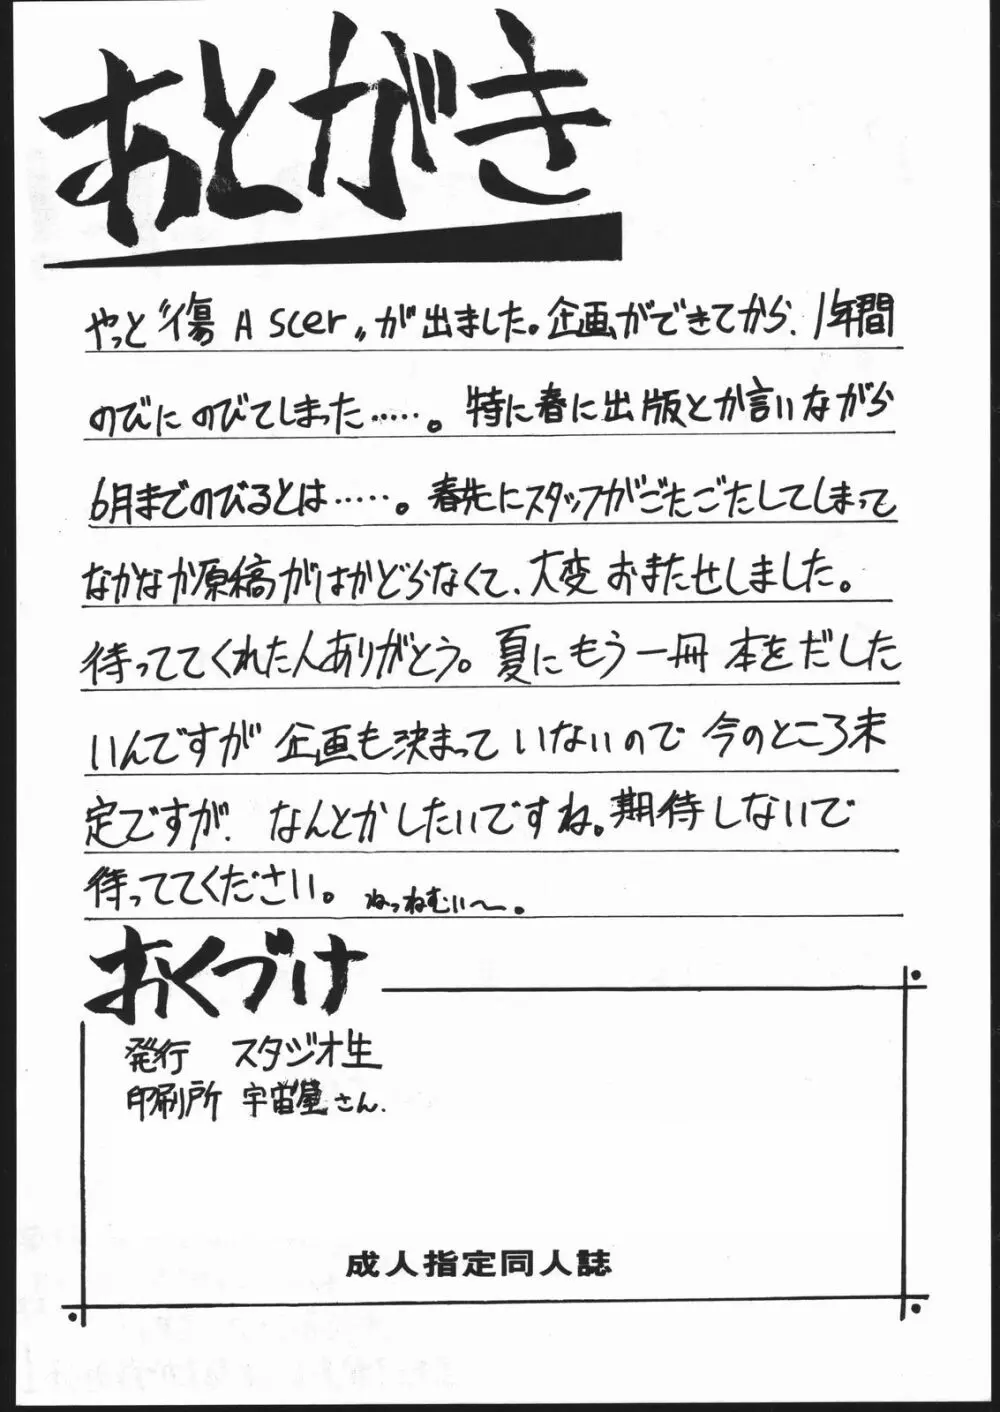 あとがき
やっと“傷 A scer„が出ました。企画ができてから、1年間
のびにのびてしまった……。特に春に出版とか言いながら
6月までのびるとは……。春先にスタッフがごたごたしてしまって
なかなか原稿がはかどらなくて、大変おまたせしました。
待っててくれた人ありがとう。夏にもう一冊 本をだした
いんですが 企画も決まって いないので 今のところ未
定ですが、なんとかしたいですね。期待しないで
待っててください。ねっねむい〜。
おくづけ
発行 スタジオ生
印刷所 宇宙屋さん.
成人指定同人誌